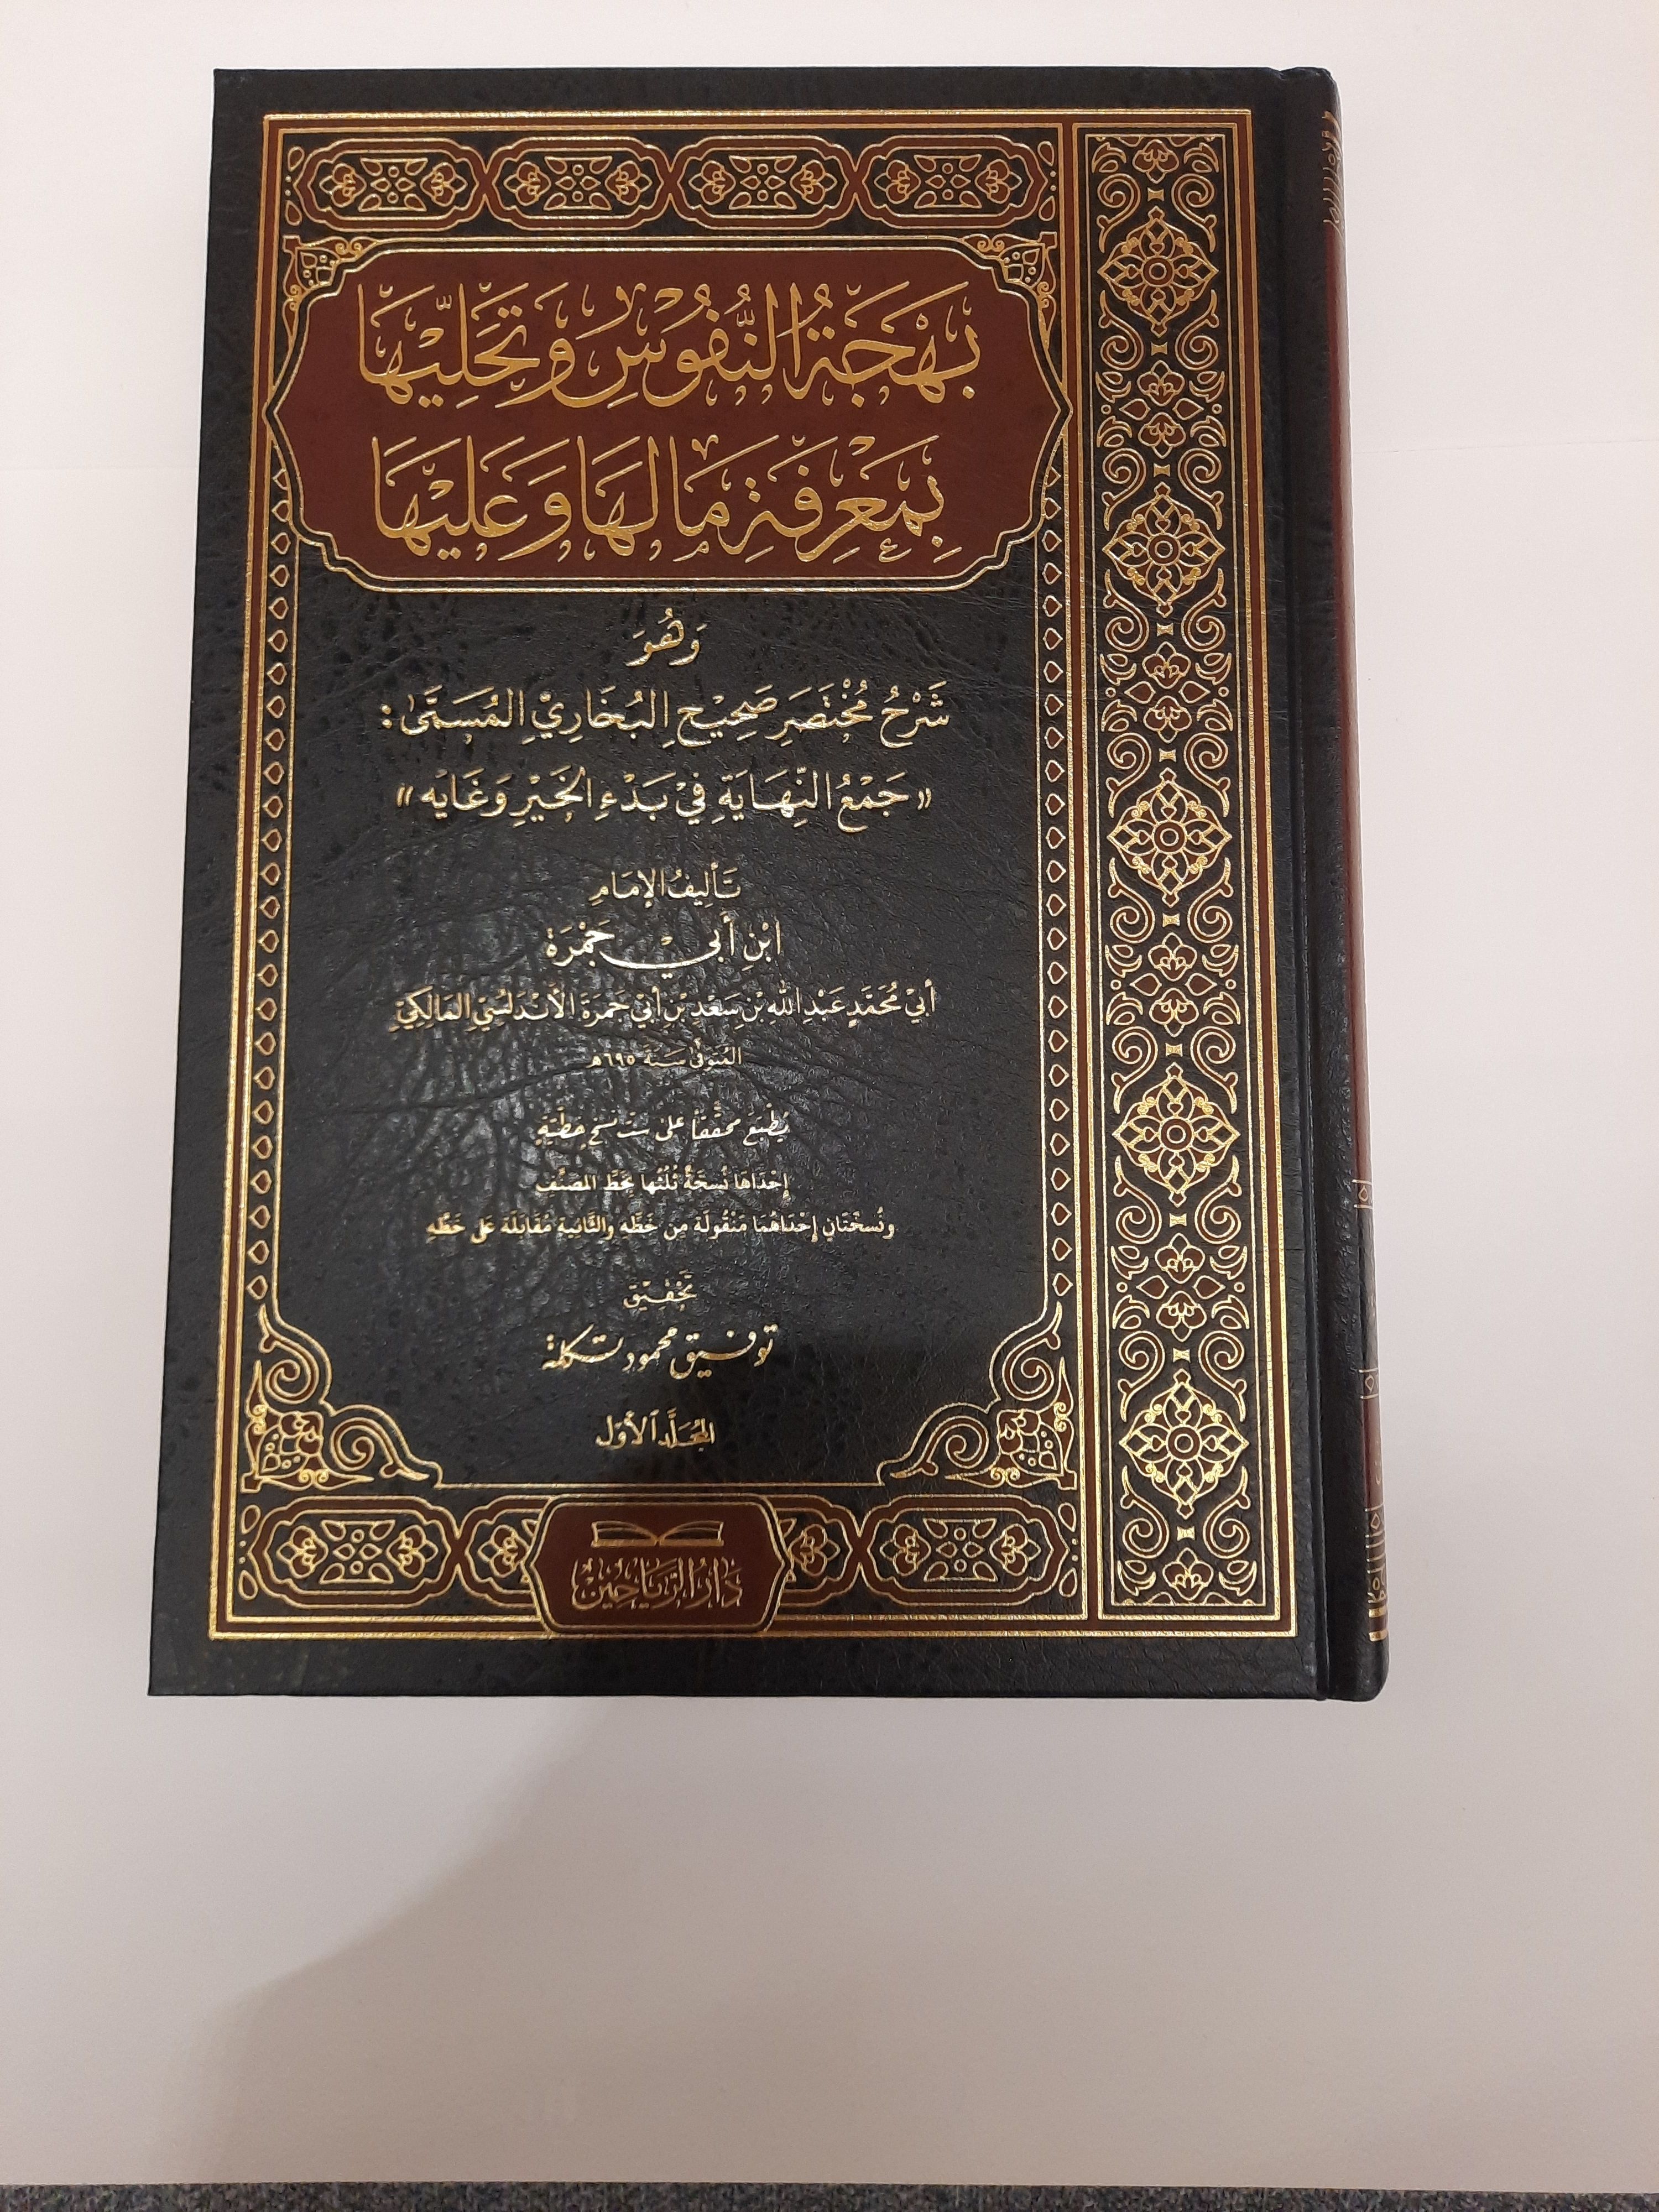 بَهْجَةُ النُّفُوْسِ وَتَحَلِّيْهَا
بِمَعْرِفَةِ مَا لَهَا وَعَلَيْهَا
وَهُوَ
شَرْحُ مُخْتَصَرِ صَحِيْحِ البُخَارِيِّ المُسَمَّىٰ:
«جَمْعُ النِّهَايَةِ فِيْ بَدْءِ الخَيْرِ وَغَايَه»
تَأليفُ الإمَامِ
ابْنِ أَبيْ جَمْرَة
أبيْ مُحَمَّدٍ عَبْدِ اللهِ بْنِ سَعْدِ بْنِ أَبيْ جَمرَةَ الأَنْدَلُسِيِّ المَالِكِيِّ
المُتوَفَّى سَنَةَ ٦٩٥هـ
يُطْبَع محَقَّقاً عَلى ستّ نسَخٍ خطيّةٍ
إحْدَاهَا نُسخَةٌ ثُلُثُها بخَطِّ المصَنِّف
ونُسخَتَانِ إحْدَاهُمَا مَنْقُولَة مِن خَطِّه والثَّانِية مُقَابَلَة عَلى خَطِّهِ
تَحْقِيْق
توفيق محمود تكلة
المُجَلَّد الأوّل
دَارُ الرَّيَاحِين